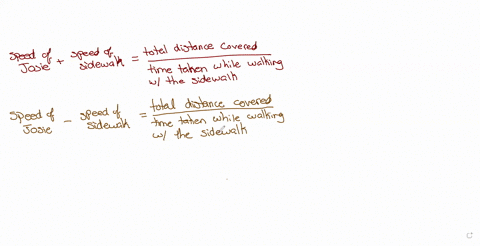 speed of Josie + speed of sidewalk = total distance covered / time taken while walking w/ the sidewalk
speed of Josie - speed of sidewalk = total distance covered / time taken while walking w/ the sidewalk